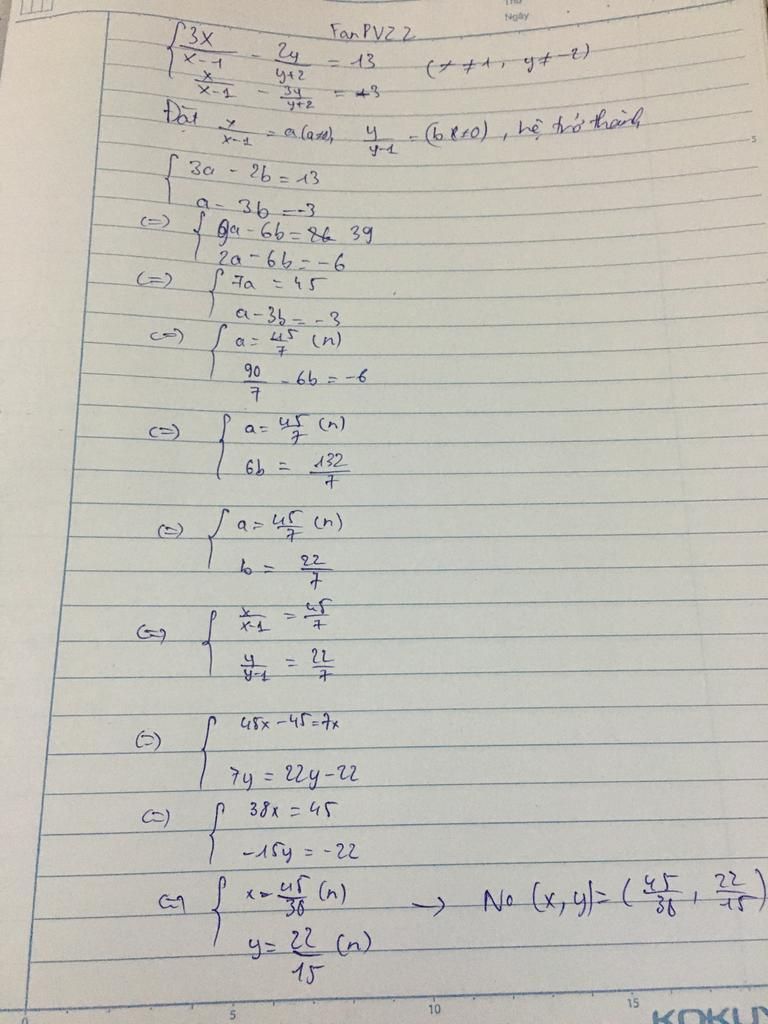 Thứ
Ngày
FanPVZ 2
{ 3x/x-1 - 2y/y+2 = 13 (x ≠ 1, y ≠ -2)
x/x-1 - 3y/y+2 = -3
Đặt x/x-1 = a (a≠0), y/y-1 = (b ≠0), hệ trở thành
{ 3a - 2b = 13
a - 3b = -3
(=) { 9a - 6b = 39
2a - 6b = -6
(=) { 7a = 45
a - 3b = -3
(=) { a = 45/7 (n)
90/7 - 6b = -6
(=) { a = 45/7 (n)
6b = 132/7
(=) { a = 45/7 (n)
b = 22/7
(=) { x/x-1 = 45/7
y/y-1 = 22/7
(=) { 45x - 45 = 7x
7y = 22y - 22
(=) { 38x = 45
-15y = -22
(=) { x = 45/38 (n) → No (x, y) = (45/38, 22/15)
y = 22/15 (n)
5
0 5 10 15